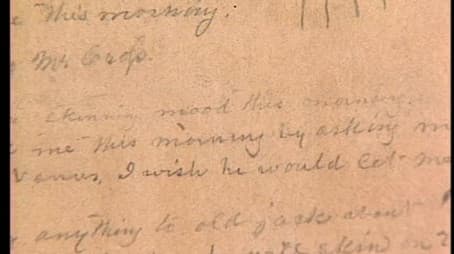 this morning.
Mr Crop.
skinning mood this morning.
me this morning by asking m
I wish he would let me
anything to old jack about
skin on